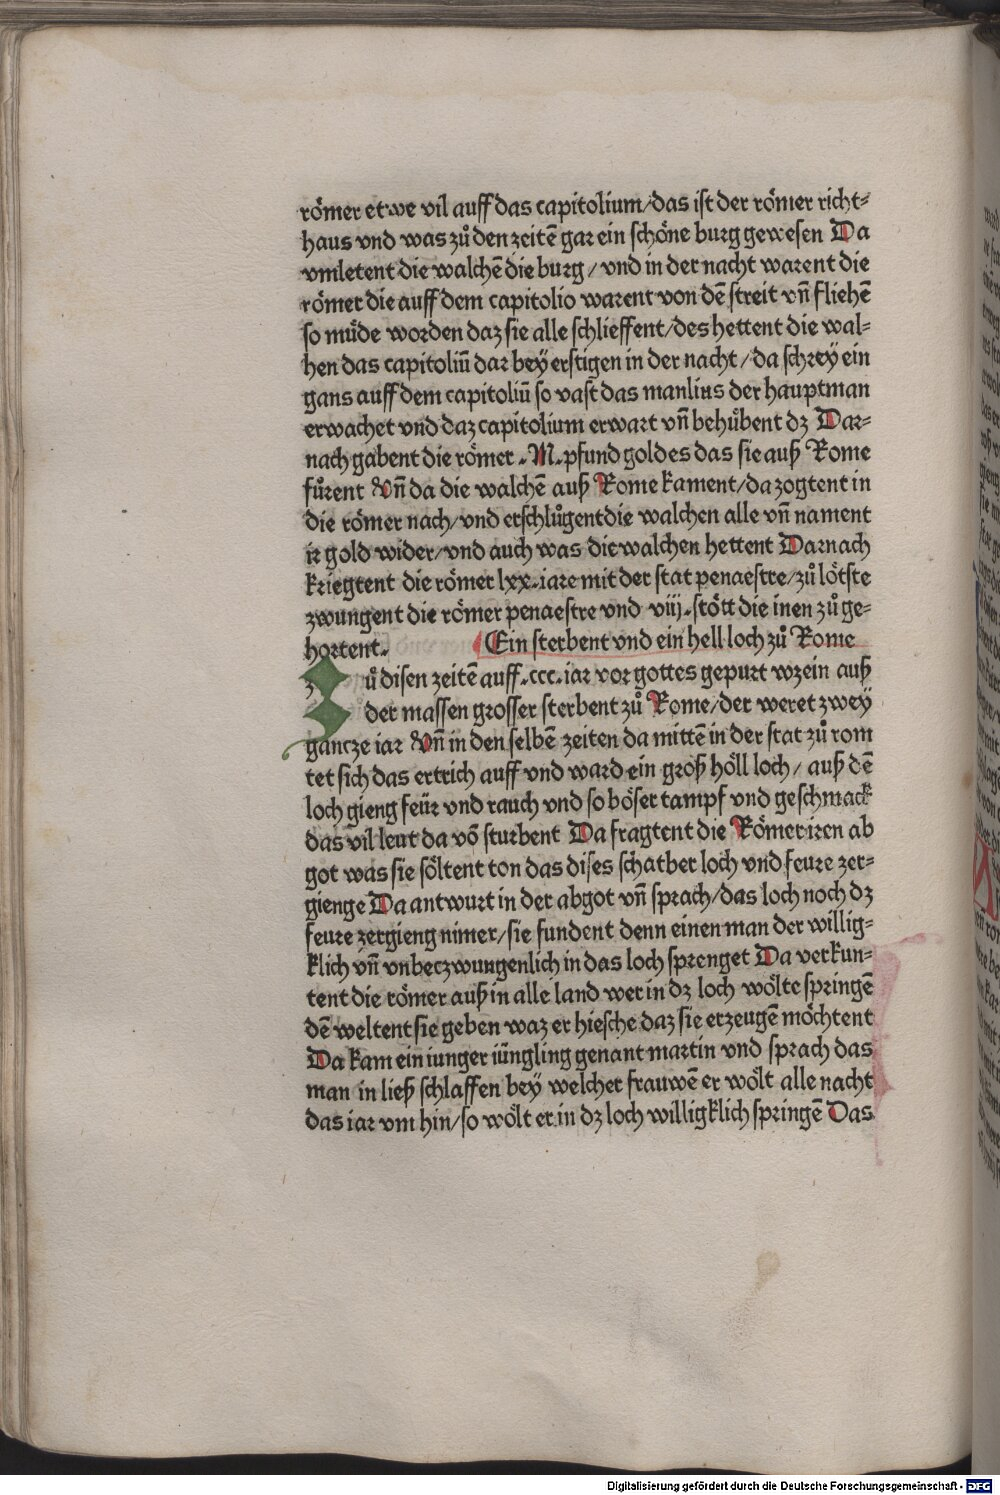 römer etwe vil auff das capitolium/das ist der römer richt⸗
haus vnd was zů den zeitē gar ein schöne burg gewesen Da
vmletent die walchē die burg / vnd in der nacht warent die
römer die auff dem capitolio warent von dē streit vn̄ fliehē
so müde worden daz sie alle schlieffent/des hettent die wal⸗
hen das capitoliū dar bey erstigen in der nacht /da schrey ein
gans auff dem capitoliū so vast das manlius der hauptman
erwachet vnd daz capitolium erwart vn̄ behůbent dz Dar⸗
nach gabent die römer .M. pfund goldes das sie auß Rome
fůrent Vn̄ da die walchē auß Rome kament/da zogtent in
die römer nach/vnd erschlůgent die walchen alle vn̄ nament
ir gold wider/vnd auch was die walchen hettent Darnach
kriegtent die römer lxx. iare mit der stat penaestre/zů lötste
zwungent die römer penaestre vnd viij. stött die inen zů ge⸗
hortent.
Ein sterbent vnd ein hell loch zů Rome
Zů disen zeitē auff .ccc. iar vor gottes gepurt wz ein auß
der massen grosser sterbent zů Rome/der weret zwey
gancze iar Vn̄ in den selbē zeiten da mittē in der stat zů rom
tet sich das ertrich auff vnd ward ein groß höll loch/ auß dē
loch gieng feür vnd rauch vnd so böser tampf vnd geschmack
das vil leut da vō sturbent Da fragtent die Römer iren ab
got was sie söltent ton das dises schatber loch vnd feure zer⸗
gienge Da antwurt in der abgot vn̄ sprach/das loch noch dz
feure zergieng nimer/sie fundent denn einen man der willig⸗
klich vn̄ vnbeczwungenlich in das loch sprenget Da verkun⸗
tent die römer auß in alle land wer in dz loch wölte springē
dē weltent sie geben waz er hiesche daz sie erzeugē möchtent
Da kam ein iunger iüngling genant martin vnd sprach das
man in ließ schlaffen bey welcher frauwē er wölt alle nacht
das iar vm hin/so wölt er in dz loch willigklich springē Das
Digitalisierung gefördert durch die Deutsche Forschungsgemeinschaft - DFG